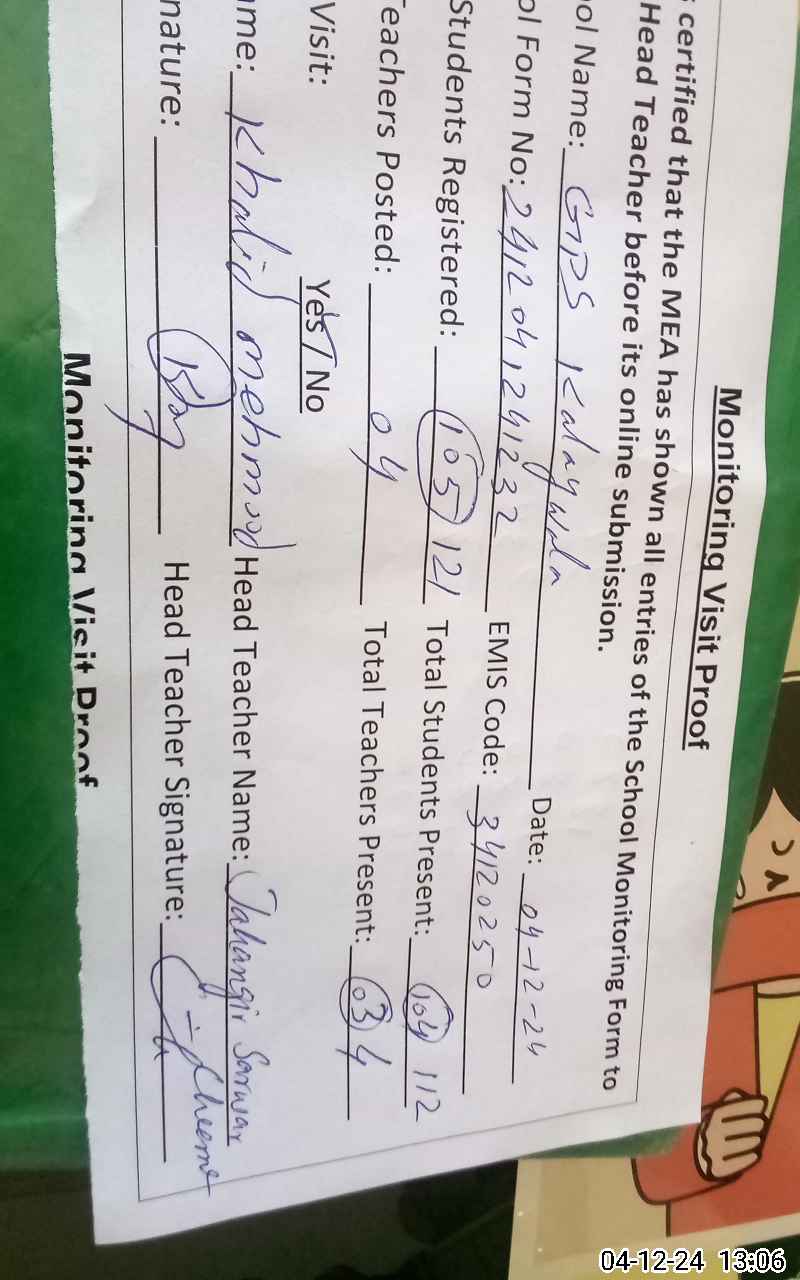 Monitoring Visit Proof
certified that the MEA has shown all entries of the School Monitoring Form to
Head Teacher before its online submission.
ol Name: GPS Kalaywala Date: 04-12-24
ol Form No: 2412041241232 EMIS Code: 34120250
Students Registered: 105 121 Total Students Present: 104 112
Teachers Posted: 04 Total Teachers Present: 03 4
Visit: Yes / No
me: Khalid mehmood Head Teacher Name: Jahangir Sarwar
nature: Head Teacher Signature: Cheema
Monitoring Visit Proof
04-12-24 13:06